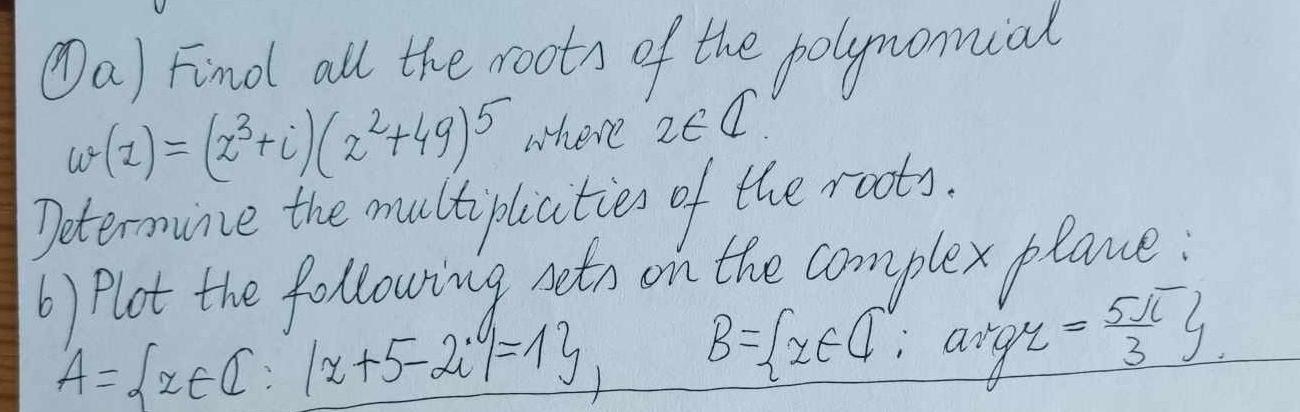 ① a) Find all the roots of the polynomial
w(z) = (z³+i)(z²+49)⁵ where z∈ℂ.
Determine the multiplicities of the roots.
b) Plot the following sets on the complex plane:
A = {z∈ℂ: |z+5-2i|=1}, B={z∈ℂ: arg z = 5π/3}.